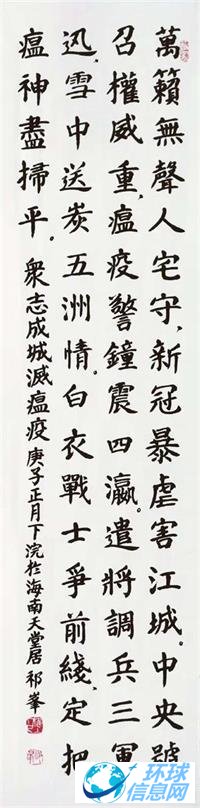 萬籟無聲人宅守、新冠暴虐害江城。中央號
召權威重，瘟疫警鐘震四瀛。遣將調兵三軍
迅，雪中送炭五洲情。白衣戰士爭前綫，定把
瘟神盡掃平。衆志成城滅瘟疫 庚子正月下浣扵海南天堂居 祁峯
环球
信息网